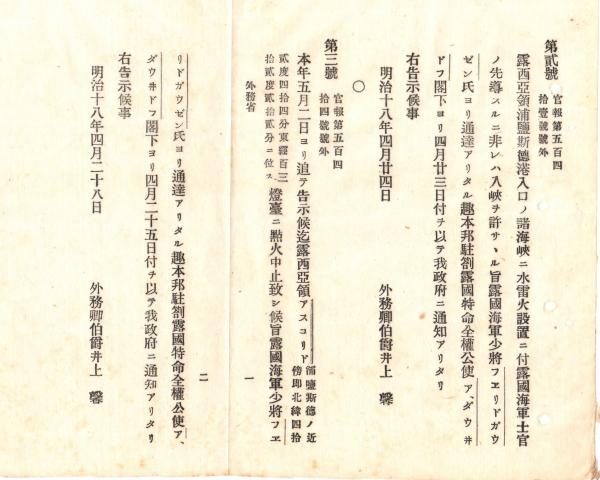 第貳號
官報第五百四
拾壹號號外
露西亞領浦鹽斯德港入口ノ諸海峽ニ水雷火設置ニ付露國海軍士官
ノ先導スルニ非レハ入峽ヲ許サヽル旨露國海軍少將フェリドガウ
ゼン氏ヨリ通達アリタル趣本邦駐劄露國特命全權公使ア、ダウ井
ドフ閣下ヨリ四月廿三日付ヲ以テ我政府ニ通知アリタリ
右告示候事
明治十八年四月廿四日
外務卿伯爵井上 馨
○
第三號
官報第五百四
拾四號號外
本年五月二日ヨリ追テ告示候迄露西亞領アスコリド浦鹽斯德ノ近
傍即北緯四拾
貳度四拾四分東經百三
拾貳度貳拾貳分ニ位ス燈臺ニ點火中止致シ候旨露國海軍少將フェ
外務省
一
リドガウゼン氏ヨリ通達アリタル趣本邦駐劄露國特命全權公使ア、
ダウ井ドフ閣下ヨリ四月二十五日付ヲ以テ我政府ニ通知アリタリ
右告示候事
明治十八年四月二十八日
外務卿伯爵井上 馨
二